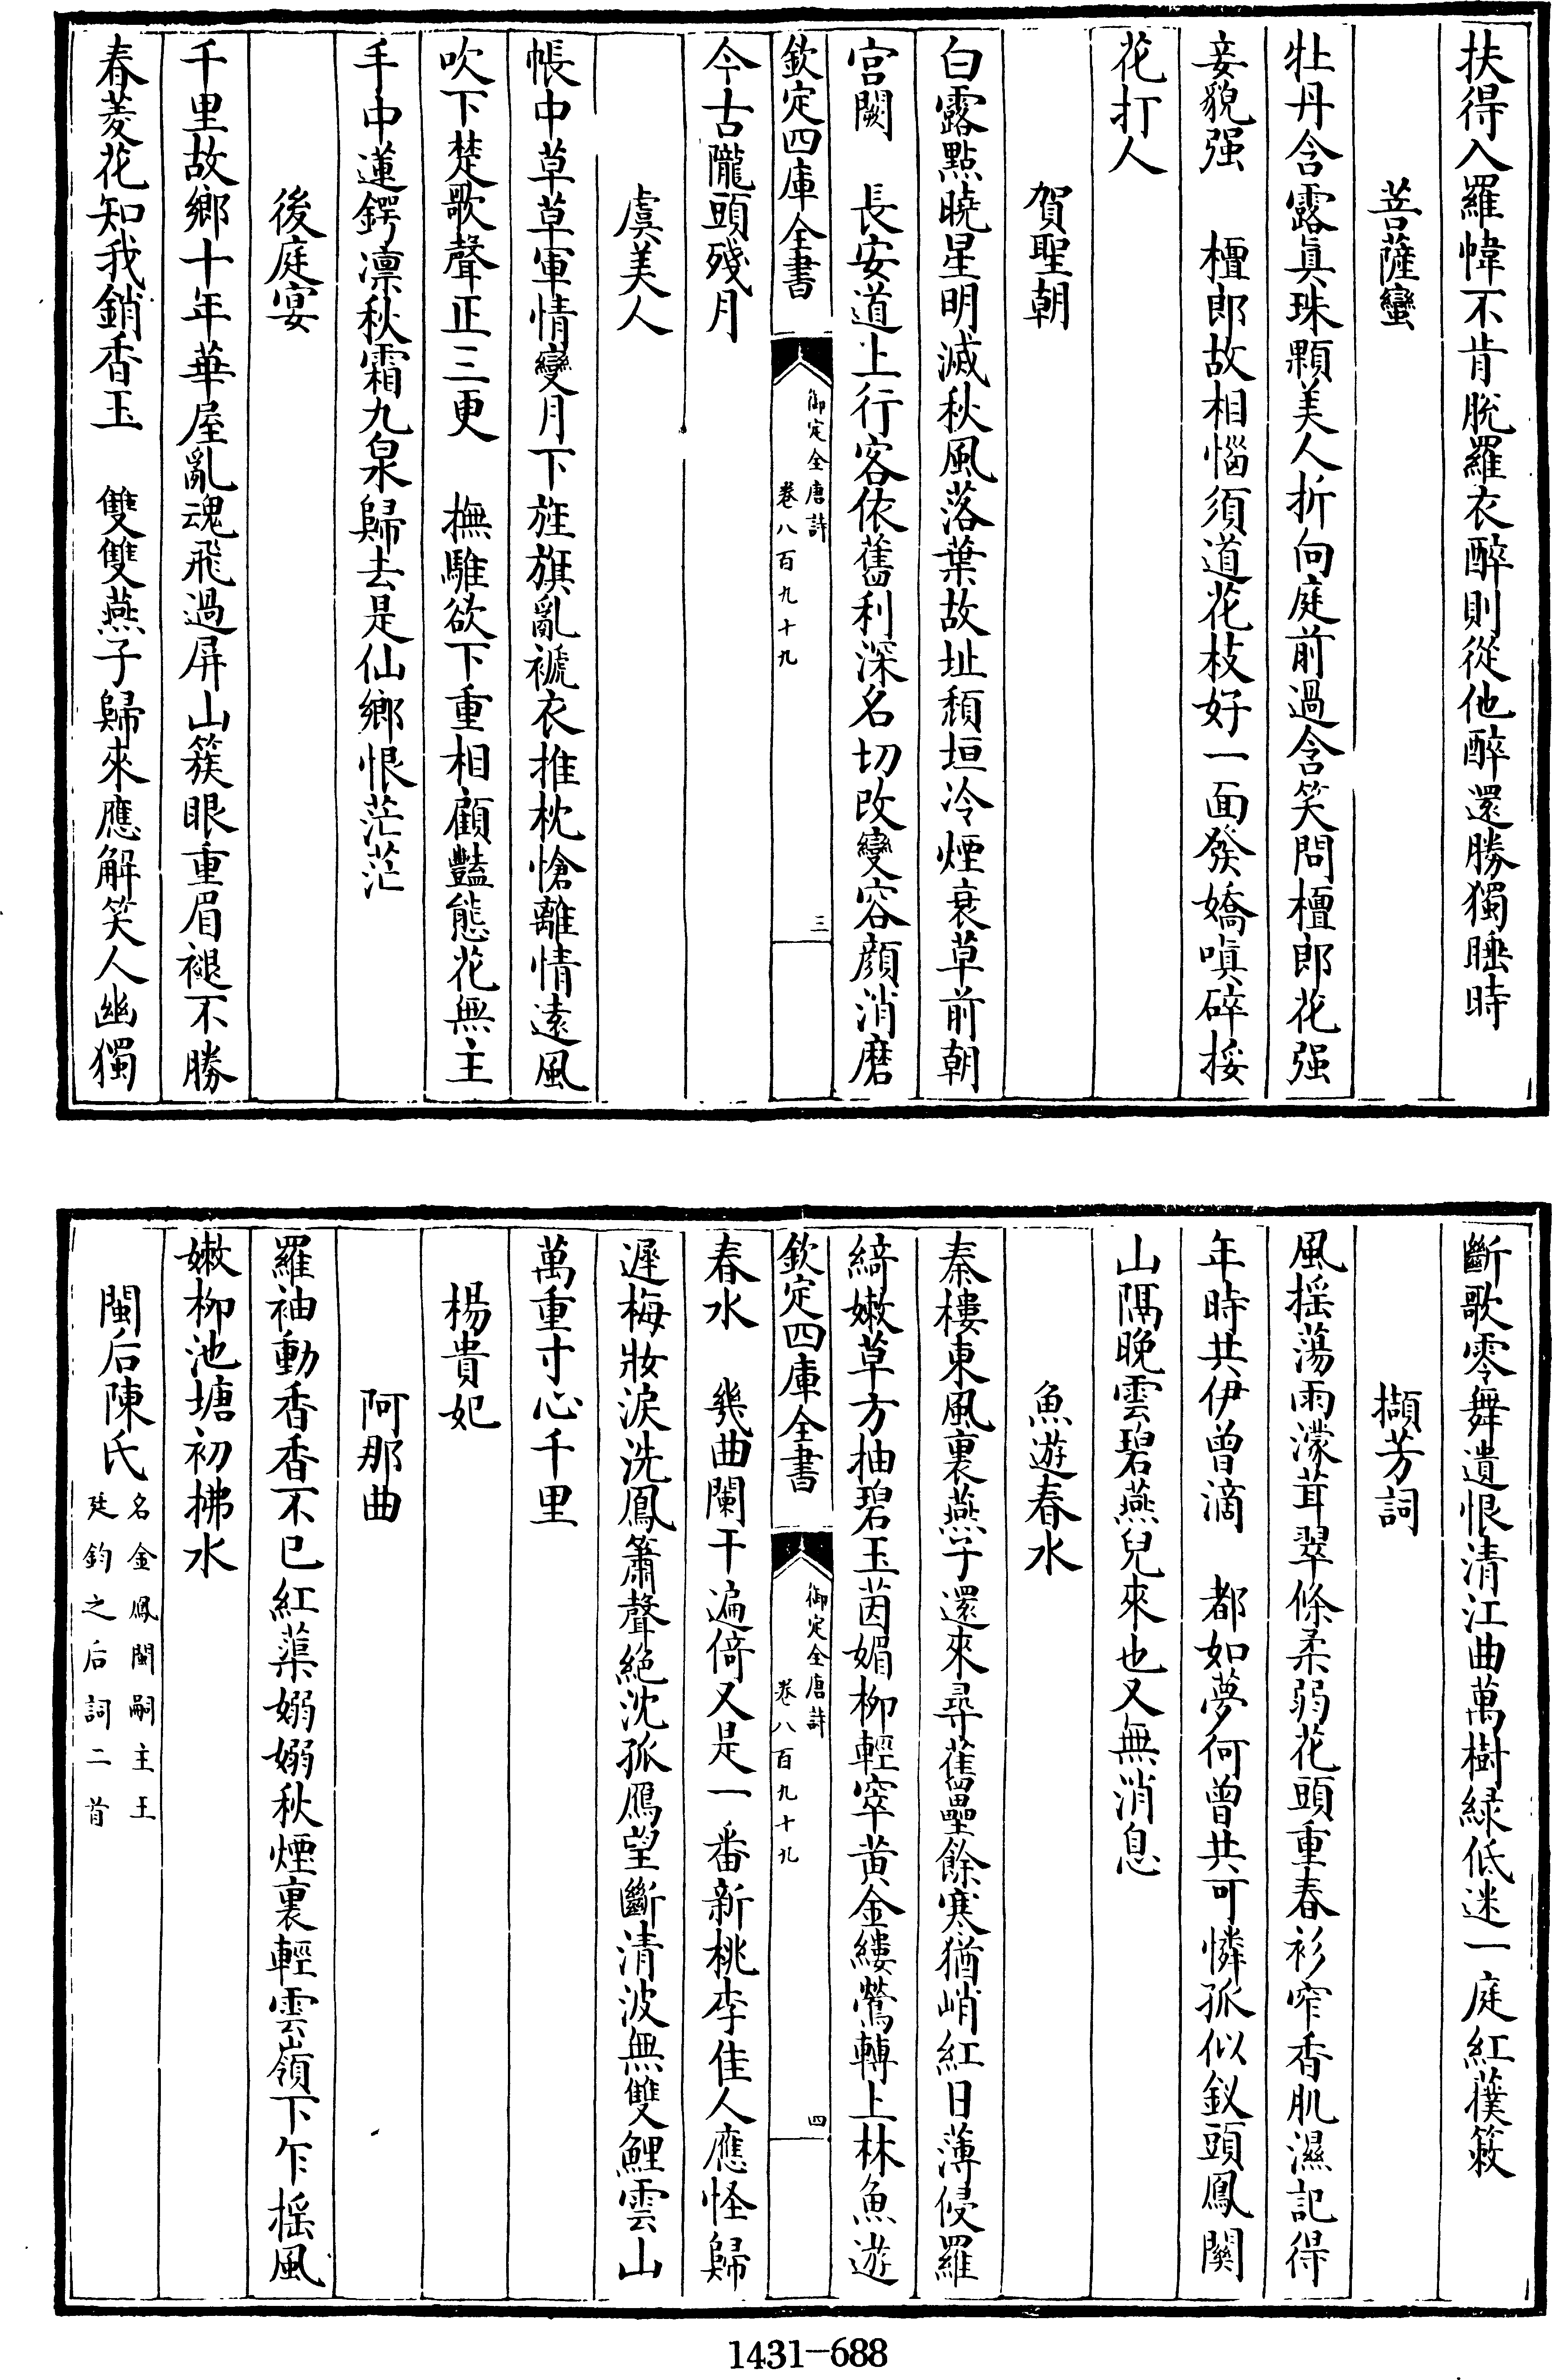 扶得入羅幃不肯脫羅衣醉則從他醉還勝獨睡時
菩薩蠻
牡丹含露真珠顆美人折向庭前過含笑問檀郎花强
妾貌强　檀郎故相惱須道花枝好一面發嬌嗔碎挼
花打人
賀聖朝
白露點曉星明滅秋風落葉故址頽垣冷煙衰草前朝
宮闕　長安道上行客依舊利深名切改變容顔消磨
欽定四庫全書
御定全唐詩
卷八百九十九
三
今古隴頭殘月
虞美人
帳中草草軍情變月下旌旗亂褫衣推枕愴離情遠風
吹下楚歌聲正三更　撫騅欲下重相顧豔態花無主
手中蓮鍔凛秋霜九泉歸去是仙鄉恨茫茫
後庭宴
千里故鄉十年華屋亂魂飛過屏山簇眼重眉褪不勝
春菱花知我銷香玉　雙雙燕子歸來應解笑人幽獨
斷歌零舞遺恨清江曲萬樹緑低迷一庭紅蕧簌
擷芳詞
風摇蕩雨濛茸翠條柔弱花頭重春衫窄香肌濕記得
年時共伊曾滴　都如夢何曾共可憐孤似釵頭鳳關
山隔晚雲碧燕兒來也又無消息
魚遊春水
秦樓東風裏燕子還來尋舊壘餘寒猶峭紅日薄侵羅
綺嫩草方抽碧玉茵媚柳輕窣黄金縷鶯轉上林魚遊
欽定四庫全書
御定全唐詩
卷八百九十九
四
春水　幾曲闌干遍倚又是一番新桃李佳人應怪歸
遲梅妝淚洗鳳簫聲絶沈孤鴈望斷清波無雙鯉雲山
萬重寸心千里
楊貴妃
阿那曲
羅袖動香香不已紅蕖嫋嫋秋煙裏輕雲嶺下乍摇風
嫩柳池塘初拂水
閩后陳氏名金鳳閩嗣主王
廷鈞之后詞二首
1431-688